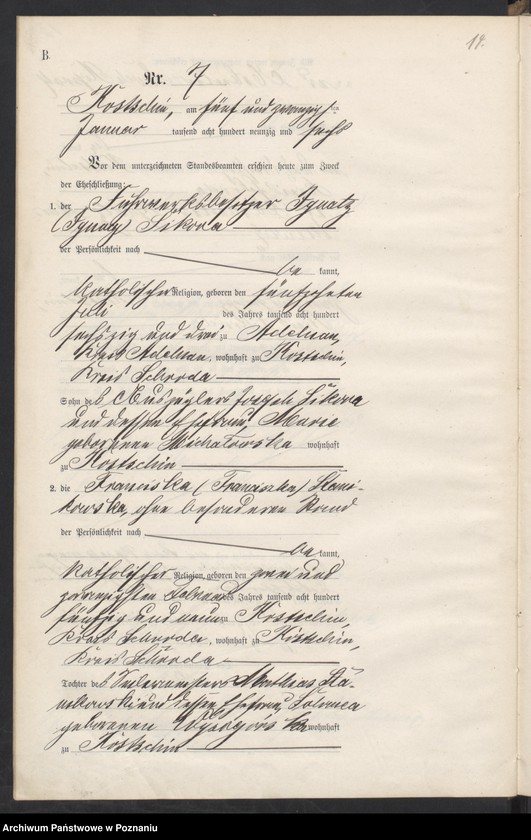 18.
B.
Nr. 7
Kostschin, am fünf und zwanzigsten
Januar tausend acht hundert neunzig und sechs
Vor dem unterzeichneten Standesbeamten erschien heute zum Zweck
der Eheschließung:
1. der Fuhrwerksbesitzer Ignatz
(Ignacy) Sikora
der Persönlichkeit nach
be kannt,
katholischer Religion, geboren den fünfzehnten
Juli des Jahres tausend acht hundert
sechszig und drei zu Adelnau,
Kreis Adelnau, wohnhaft zu Kostschin,
Kreis Schroda
Sohn des Auszüglers Joseph Sikora
und dessen Ehefrau, Marie
geborenen Michalowska wohnhaft
zu Kostschin
2. die Franciska (Franciszka)
ohne besonderen Stand
der Persönlichkeit nach
be kannt,
katholischer Religion, geboren den zwei und
zwanzigsten des Jahres tausend acht hundert
fünfzig und neun zu Kostschin,
Kreis Schroda, wohnhaft zu Kostschin,
Kreis Schroda
Tochter des Mathias
und dessen Ehefrau
geborenen wohnhaft
zu Kostschin
Archiwum Państwowe w Poznaniu